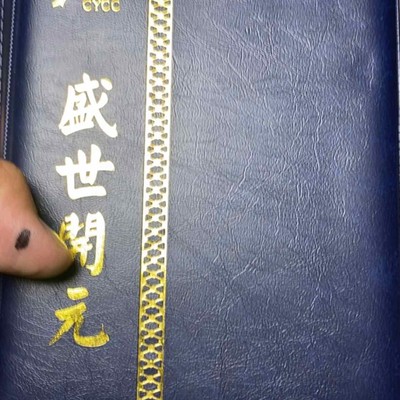 CYCC
盛世開元